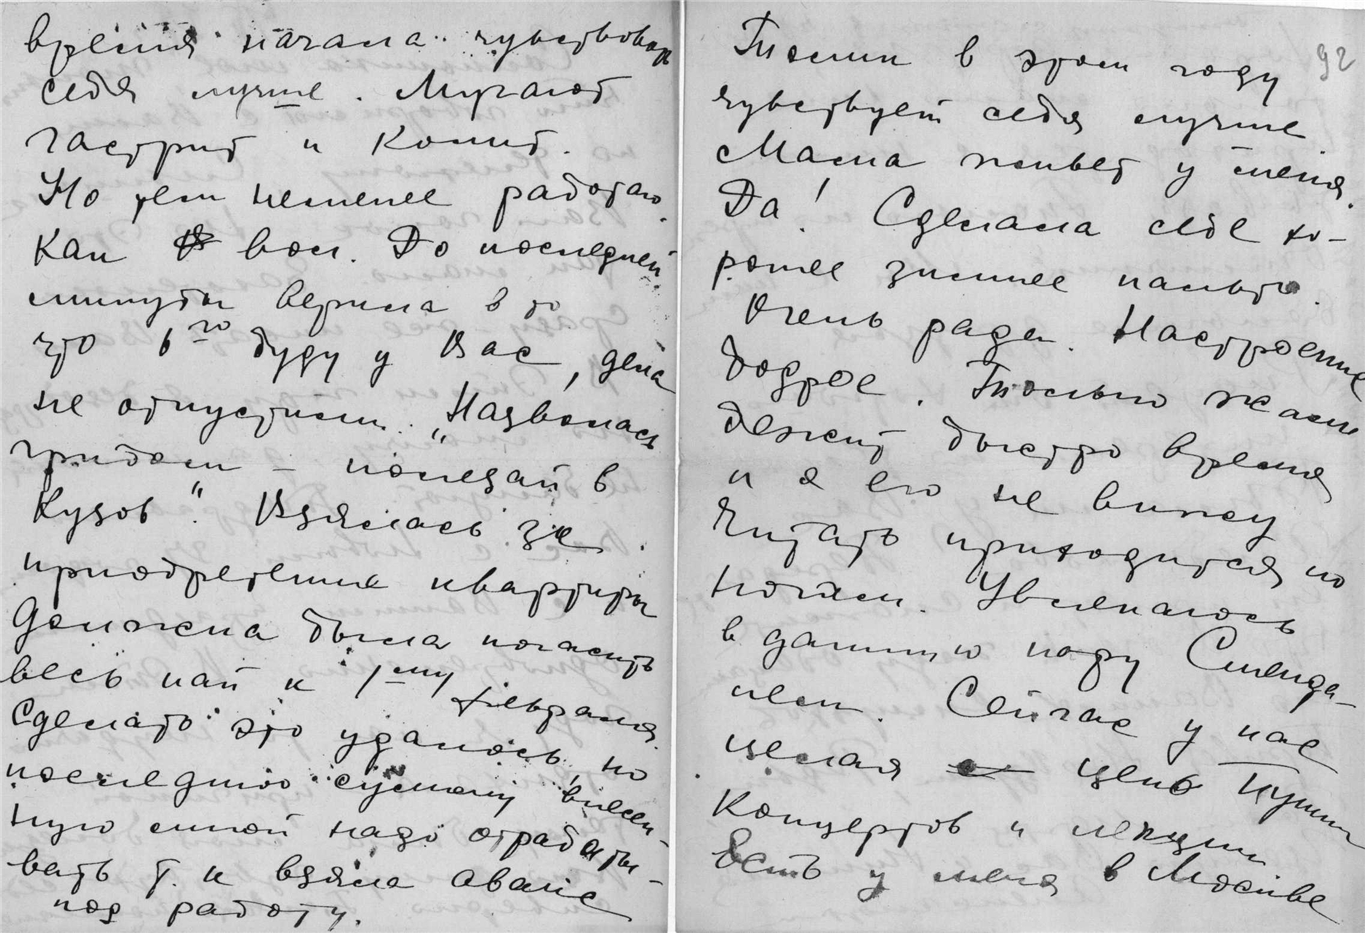 время начала чувствовать
себя лучше. Мучают
гастрит и колит.
Но тем неменее работаю
как вол. До последней
минуты верила в то
что 6го буду у Вас, дела
не отпустили. „Назвалась
грибом – полезай в
кузов". Взялась за
приобретение квартиры
должна была погасить
весь пай к 1му февраля.
Сделать это удалось, но
последнюю сумму внесен-
ную мной надо отрабаты-
вать т. к взяла аванс
под работу.
92
Томми в этом году
чувствует себя лучше
Мама живет у меня.
Да! Сделала себе хо-
рошее зимнее пальто.
Очень рада. Настроение
бодрое. Только жаль
бежит быстро время
и я его не вижу
Читать приходится по
ночам. Увлекаюсь
в данную пору Стенда-
лем. Сейчас у нас
целая цепь
концертов и лекций
Есть у меня в Москве